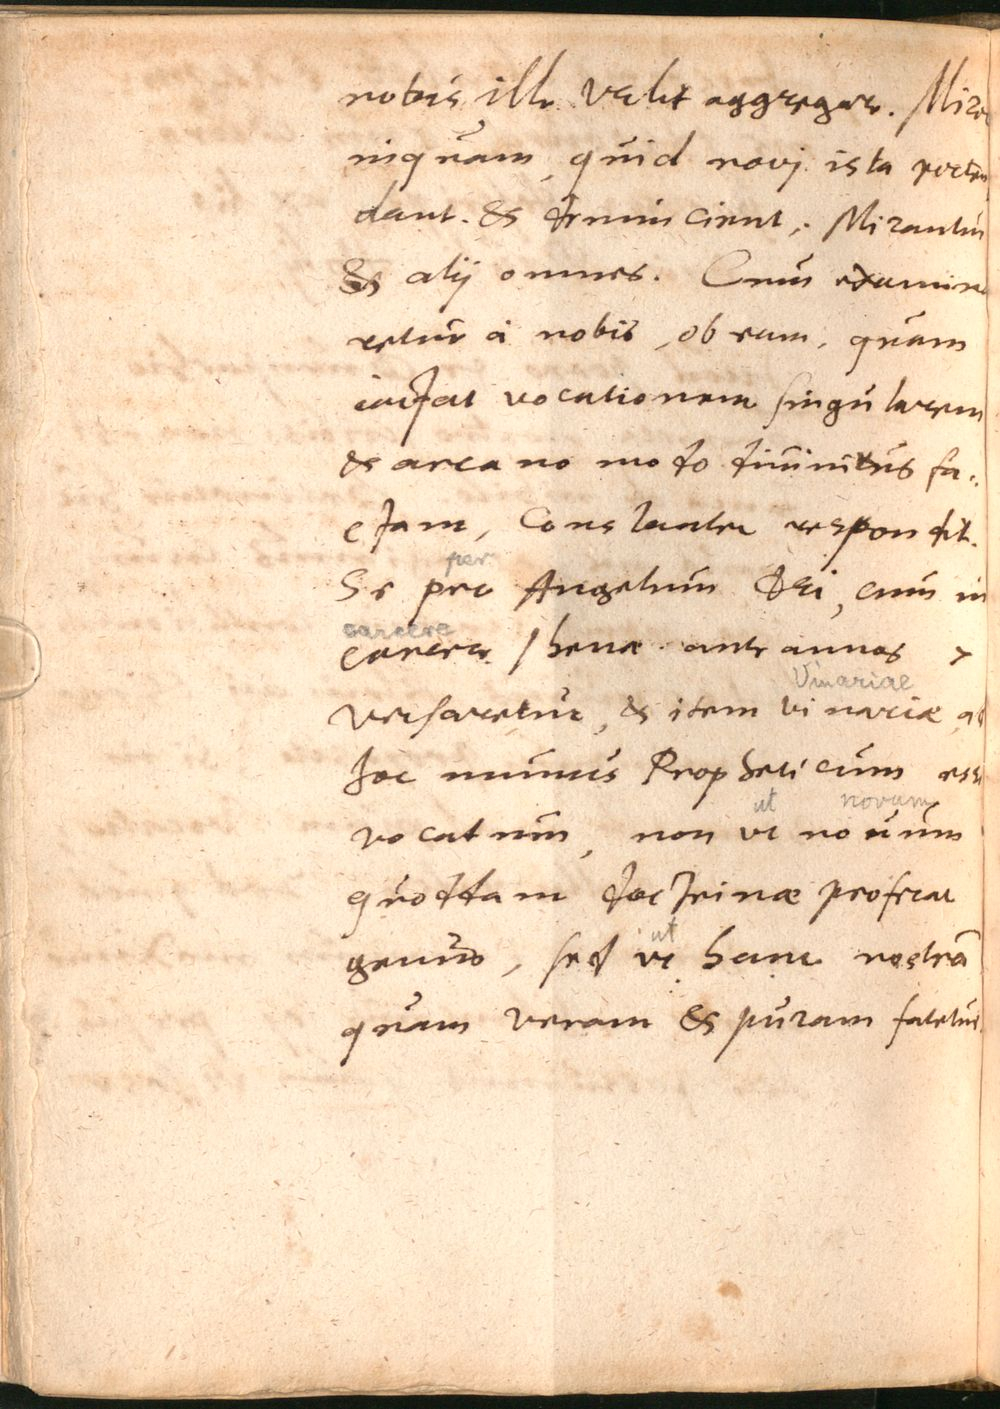 nobis ille velit aggregare. Miror
inquam, quid novj ista porten
dant. & denuncient. Mirantur
& alij omnes. Cum examina
retur a nobis, ob eam, quam
iactat vocationem singularem
& arcano modo divinitus fa:
ctam, Constanter respondit.
per
Se pro Angelum Dei, cum in
carcere
carcere Jhenæ ante annos 7
Vinariae
versaretur, & item vinariæ, ad
hoc munus Propheticum esse
ut novum
vocatum, non vt novum
quoddam doctrinæ proferat
ut
genus, sed vt hanc nostrã
quam veram & puram fatetur